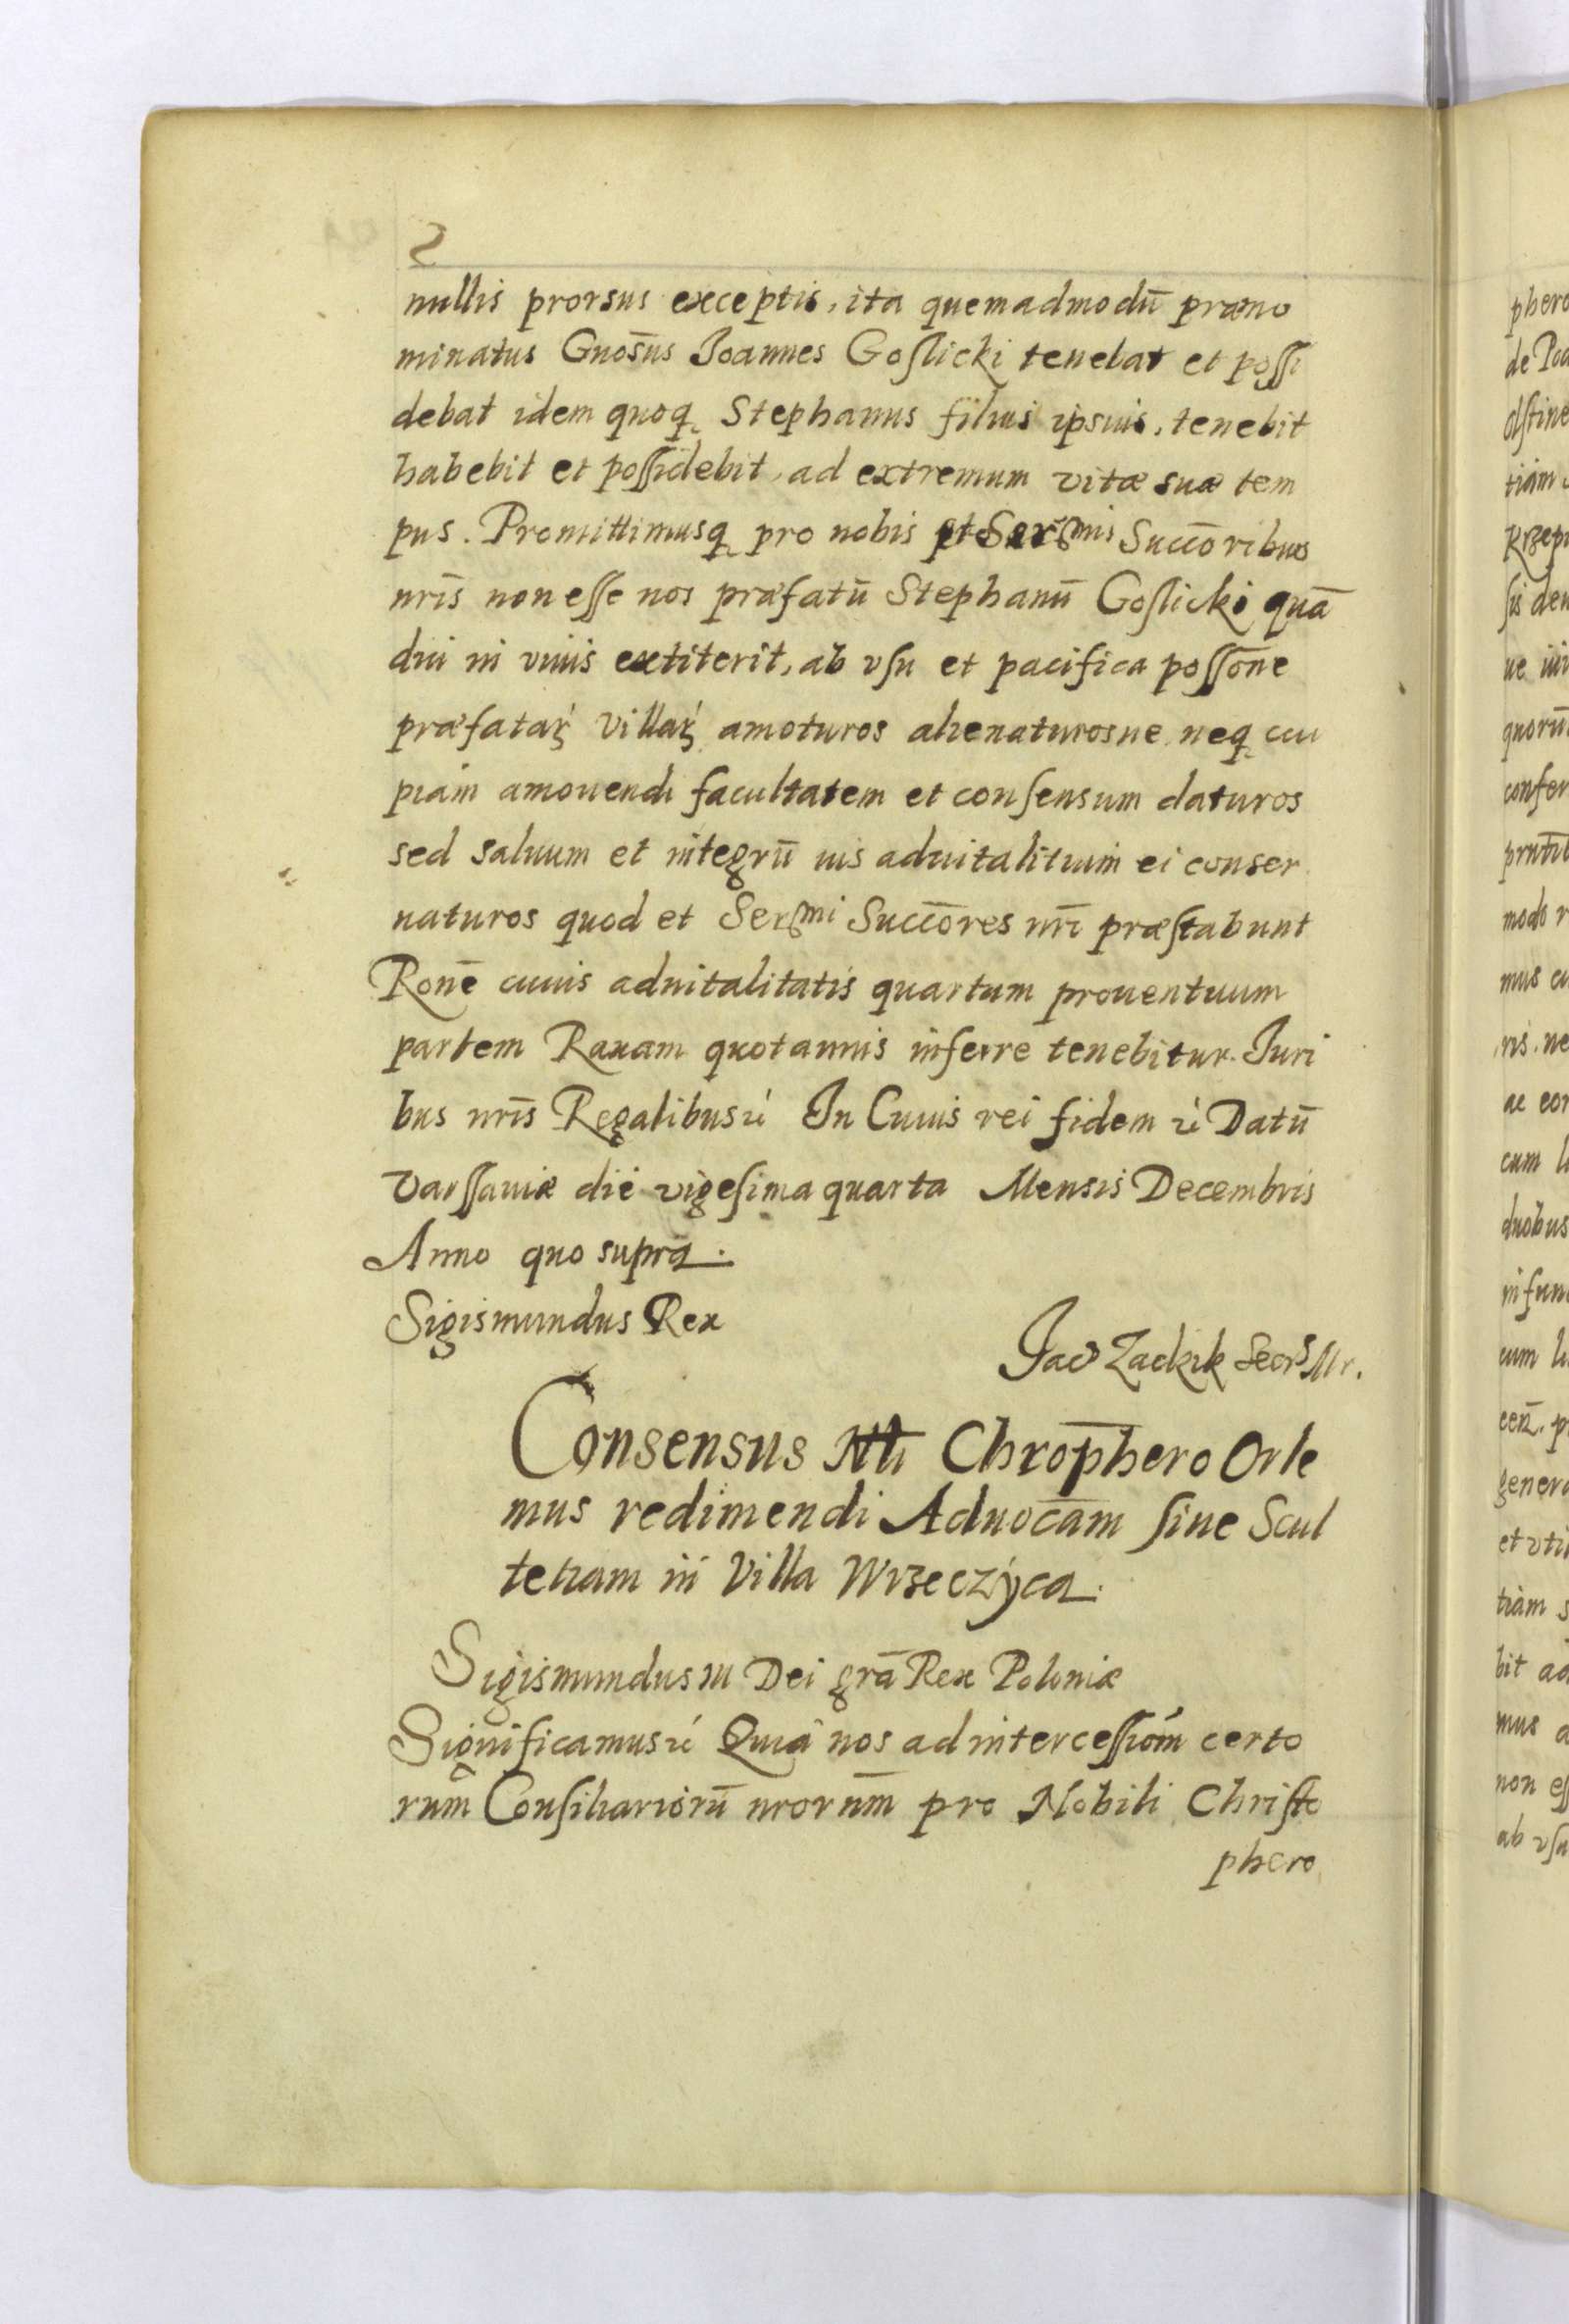 2
nullis prorsus exceptis, ita quemadmodū præno
minatus Gnōsus Joannes Goſlicki tenebat et poſſi
debat idem quoq Stephanus filius ipsius, tenebit
habebit et poſſidebit, ad extremum vitæ suæ tem
pus. Promittimusq pro nobis et Sermis Succōribus
nrīs non eſſe nos præfatū Stephanū Goſlicki quā
diu in viuis extiterit, ab vſu et pacifica poſſōne
præfatarʒ Villarʒ amoturos alienaturosue neq cui
piam amouendi facultatem et conſensum daturos
sed saluum et integrū ius aduitalitium ei conser
uaturos quod et Sermi Succōres nrī præſtabunt
Ronē cuius aduitalitatis quartam prouentuum
partem Raxam quotannis inferre tenebitur. Juri
bus nrīs Regalibus ꝛć In Cuius rei fidem ꝛć Datū
Varſſauiæ die vigeſima quarta Mensis Decembris
Anno quo supra.
Sigismundus Rex
Jac Zadzik Secrs Mr.
Consensus Nłi Chrōphero Orle
mus redimendi Aduocām ſiue Scul
tetiam in Villa Wrzeczÿca.
Sigismundus III Dei grā Rex Poloniæ
Significamus ꝛć Quia nos ad interceſſiom certo
rum Conſiliariorū nrorum̄ pro Nobili Chriſto
phero